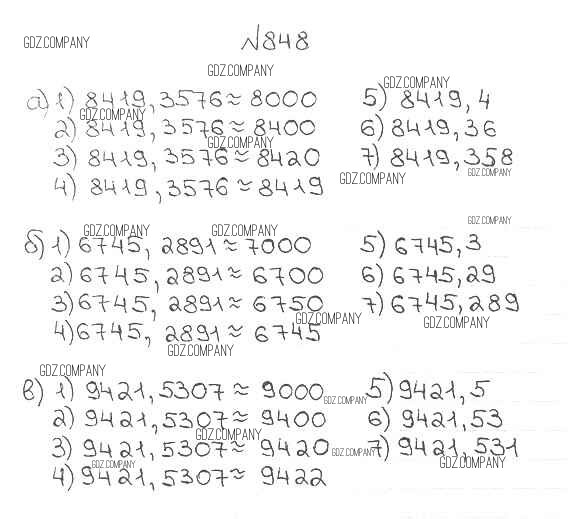 GDZ.COMPANY
№848
GDZ.COMPANY
GDZ.COMPANY
а) 1) 8419,3576 ≈ 8000 5) 8419,4
GDZ.COMPANY
2) 8419,3576 ≈ 8400 6) 8419,36
GDZ.COMPANY
3) 8419,3576 ≈ 8420 7) 8419,358
GDZ.COMPANY GDZ.COMPANY
4) 8419,3576 ≈ 8419
GDZ.COMPANY
GDZ.COMPANY GDZ.COMPANY
б) 1) 6745,2891 ≈ 7000 5) 6745,3
2) 6745,2891 ≈ 6700 6) 6745,29
3) 6745,2891 ≈ 6750 7) 6745,289
GDZ.COMPANY GDZ.COMPANY
4) 6745,2891 ≈ 6745
GDZ.COMPANY
GDZ.COMPANY
в) 1) 9421,5307 ≈ 9000 5) 9421,5
GDZ.COMPANY
2) 9421,5307 ≈ 9400 6) 9421,53
GDZ.COMPANY
3) 9421,5307 ≈ 9420 7) 9421,531
GDZ.COMPANY
GDZ.COMPANY GDZ.COMPANY
4) 9421,5307 ≈ 9422